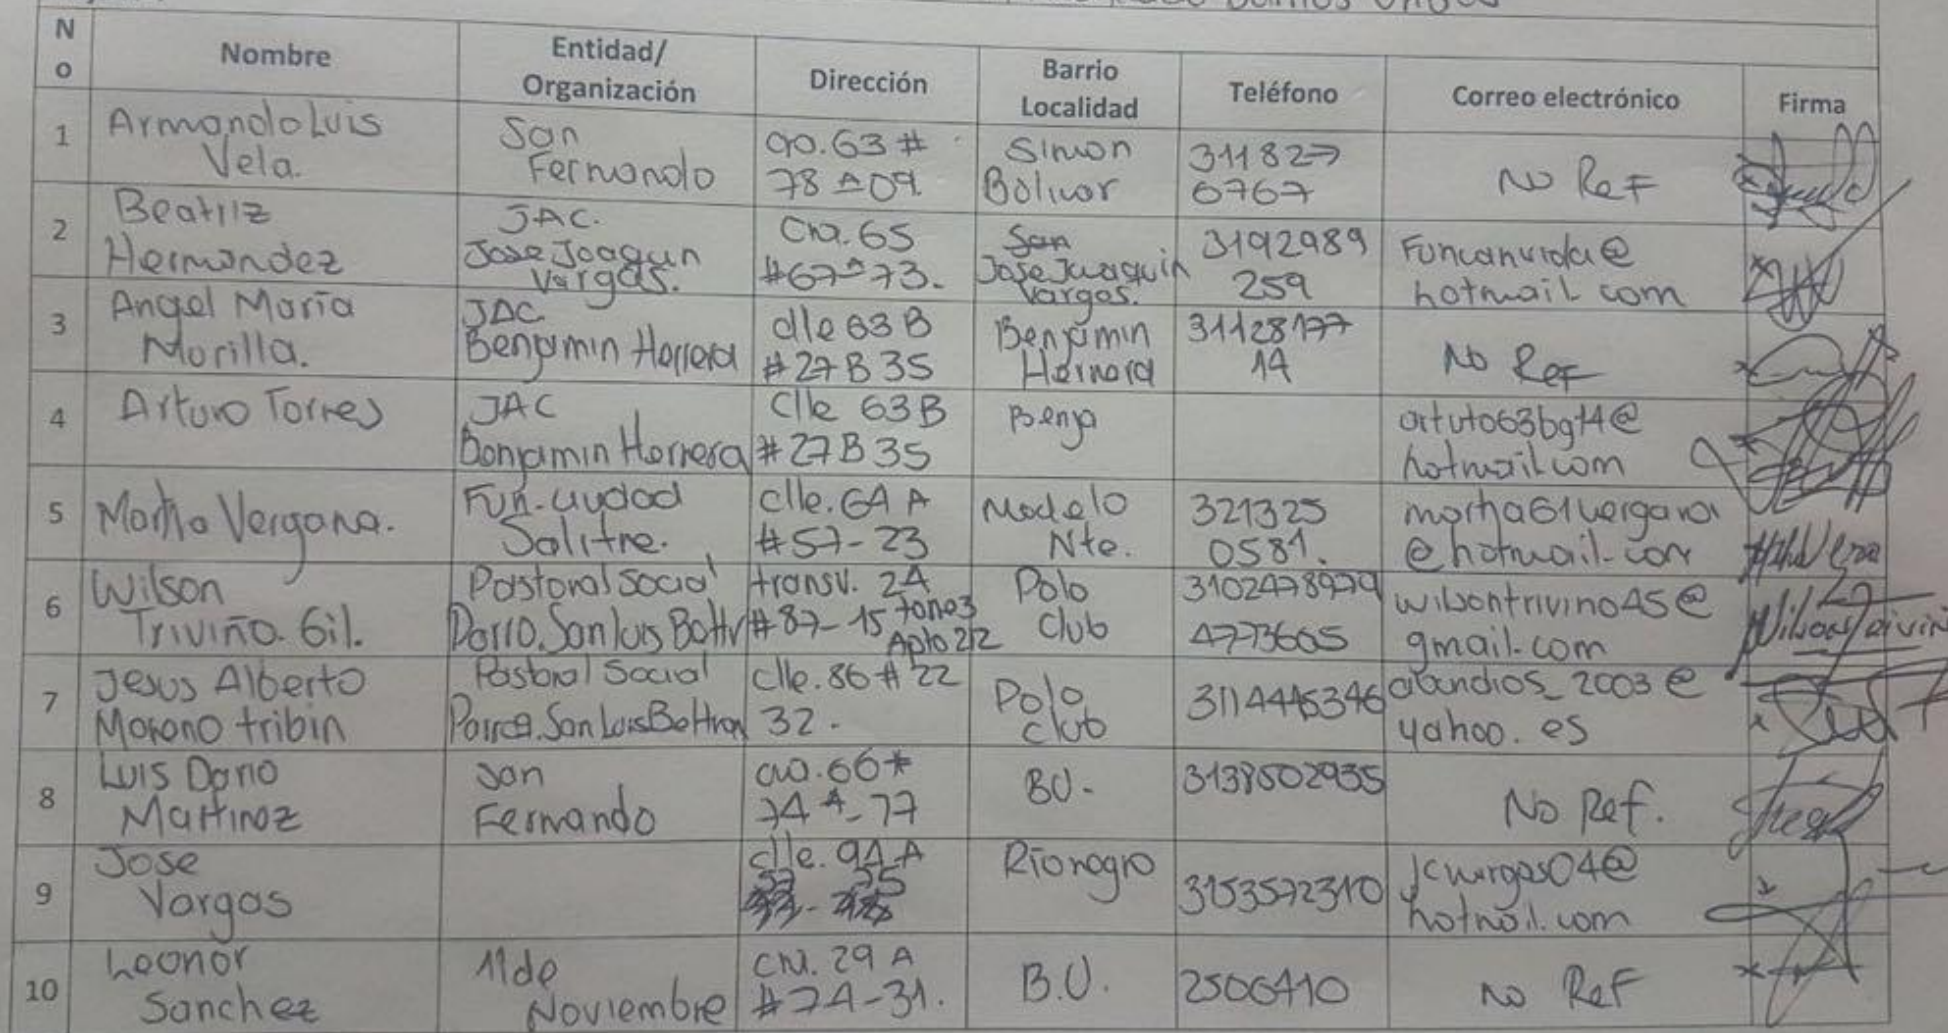 Barrios Unidos
No
Nombre
Entidad/
Organización
Dirección
Barrio
Localidad
Teléfono
Correo electrónico
Firma
1
Armando Luis
Vela.
San
Fernando
cra.63 #
78 A 09.
Simon
Bolivar
311827
6767
No Ref
2
Beatriz
Hernandez
JAC.
Jose Joaquin
Vargas.
Cra. 65
#67A 73.
San
Jose Juaquin
Vargas.
3192989
259
Funcanvida@
hotmail com
3
Angel María
Morilla.
JAC
Benjamin Herrera
clle 63 B
#27 B 35
Benjamin
Herrera
31128177
14
No Ref
4
Arturo Torres
JAC
Benjamin Herrera
Clle 63B
#27 B 35
Benja
arturo63bgt4@
hotmail com
5
Martha Vergara.
Fun. Ciudad
Salitre.
clle. 64 A
#57-23
Modelo
Nte.
321325
0581.
martha61vergara
@hotmail.com
6
Wilson
Triviño. Gil.
Pastoral Social
San Luis Beltr
transv. 24
#87-15 torre3
Apto 212
Polo
Club
3102478979
4773665
wilsontrivino45@
gmail.com
7
Jesus Alberto
Moreno tribin
Pastoral Social
Parro. San Luis Beltran
clle. 86 # 22
32.
Polo
club
3114445346
abandios_2003@
yahoo.es
8
Luis Dario
Martinez
San
Fernando
cra. 66#
74 A-77
BU.
3138502935
No Ref.
9
Jose
Vargas
clle. 94 A
Rionegro
3153572310
jcvargas04@
hotmail.com
10
Leonor
Sanchez
11 de
Noviembre
cra. 29 A
#74-31.
B.U.
2506410
No Ref